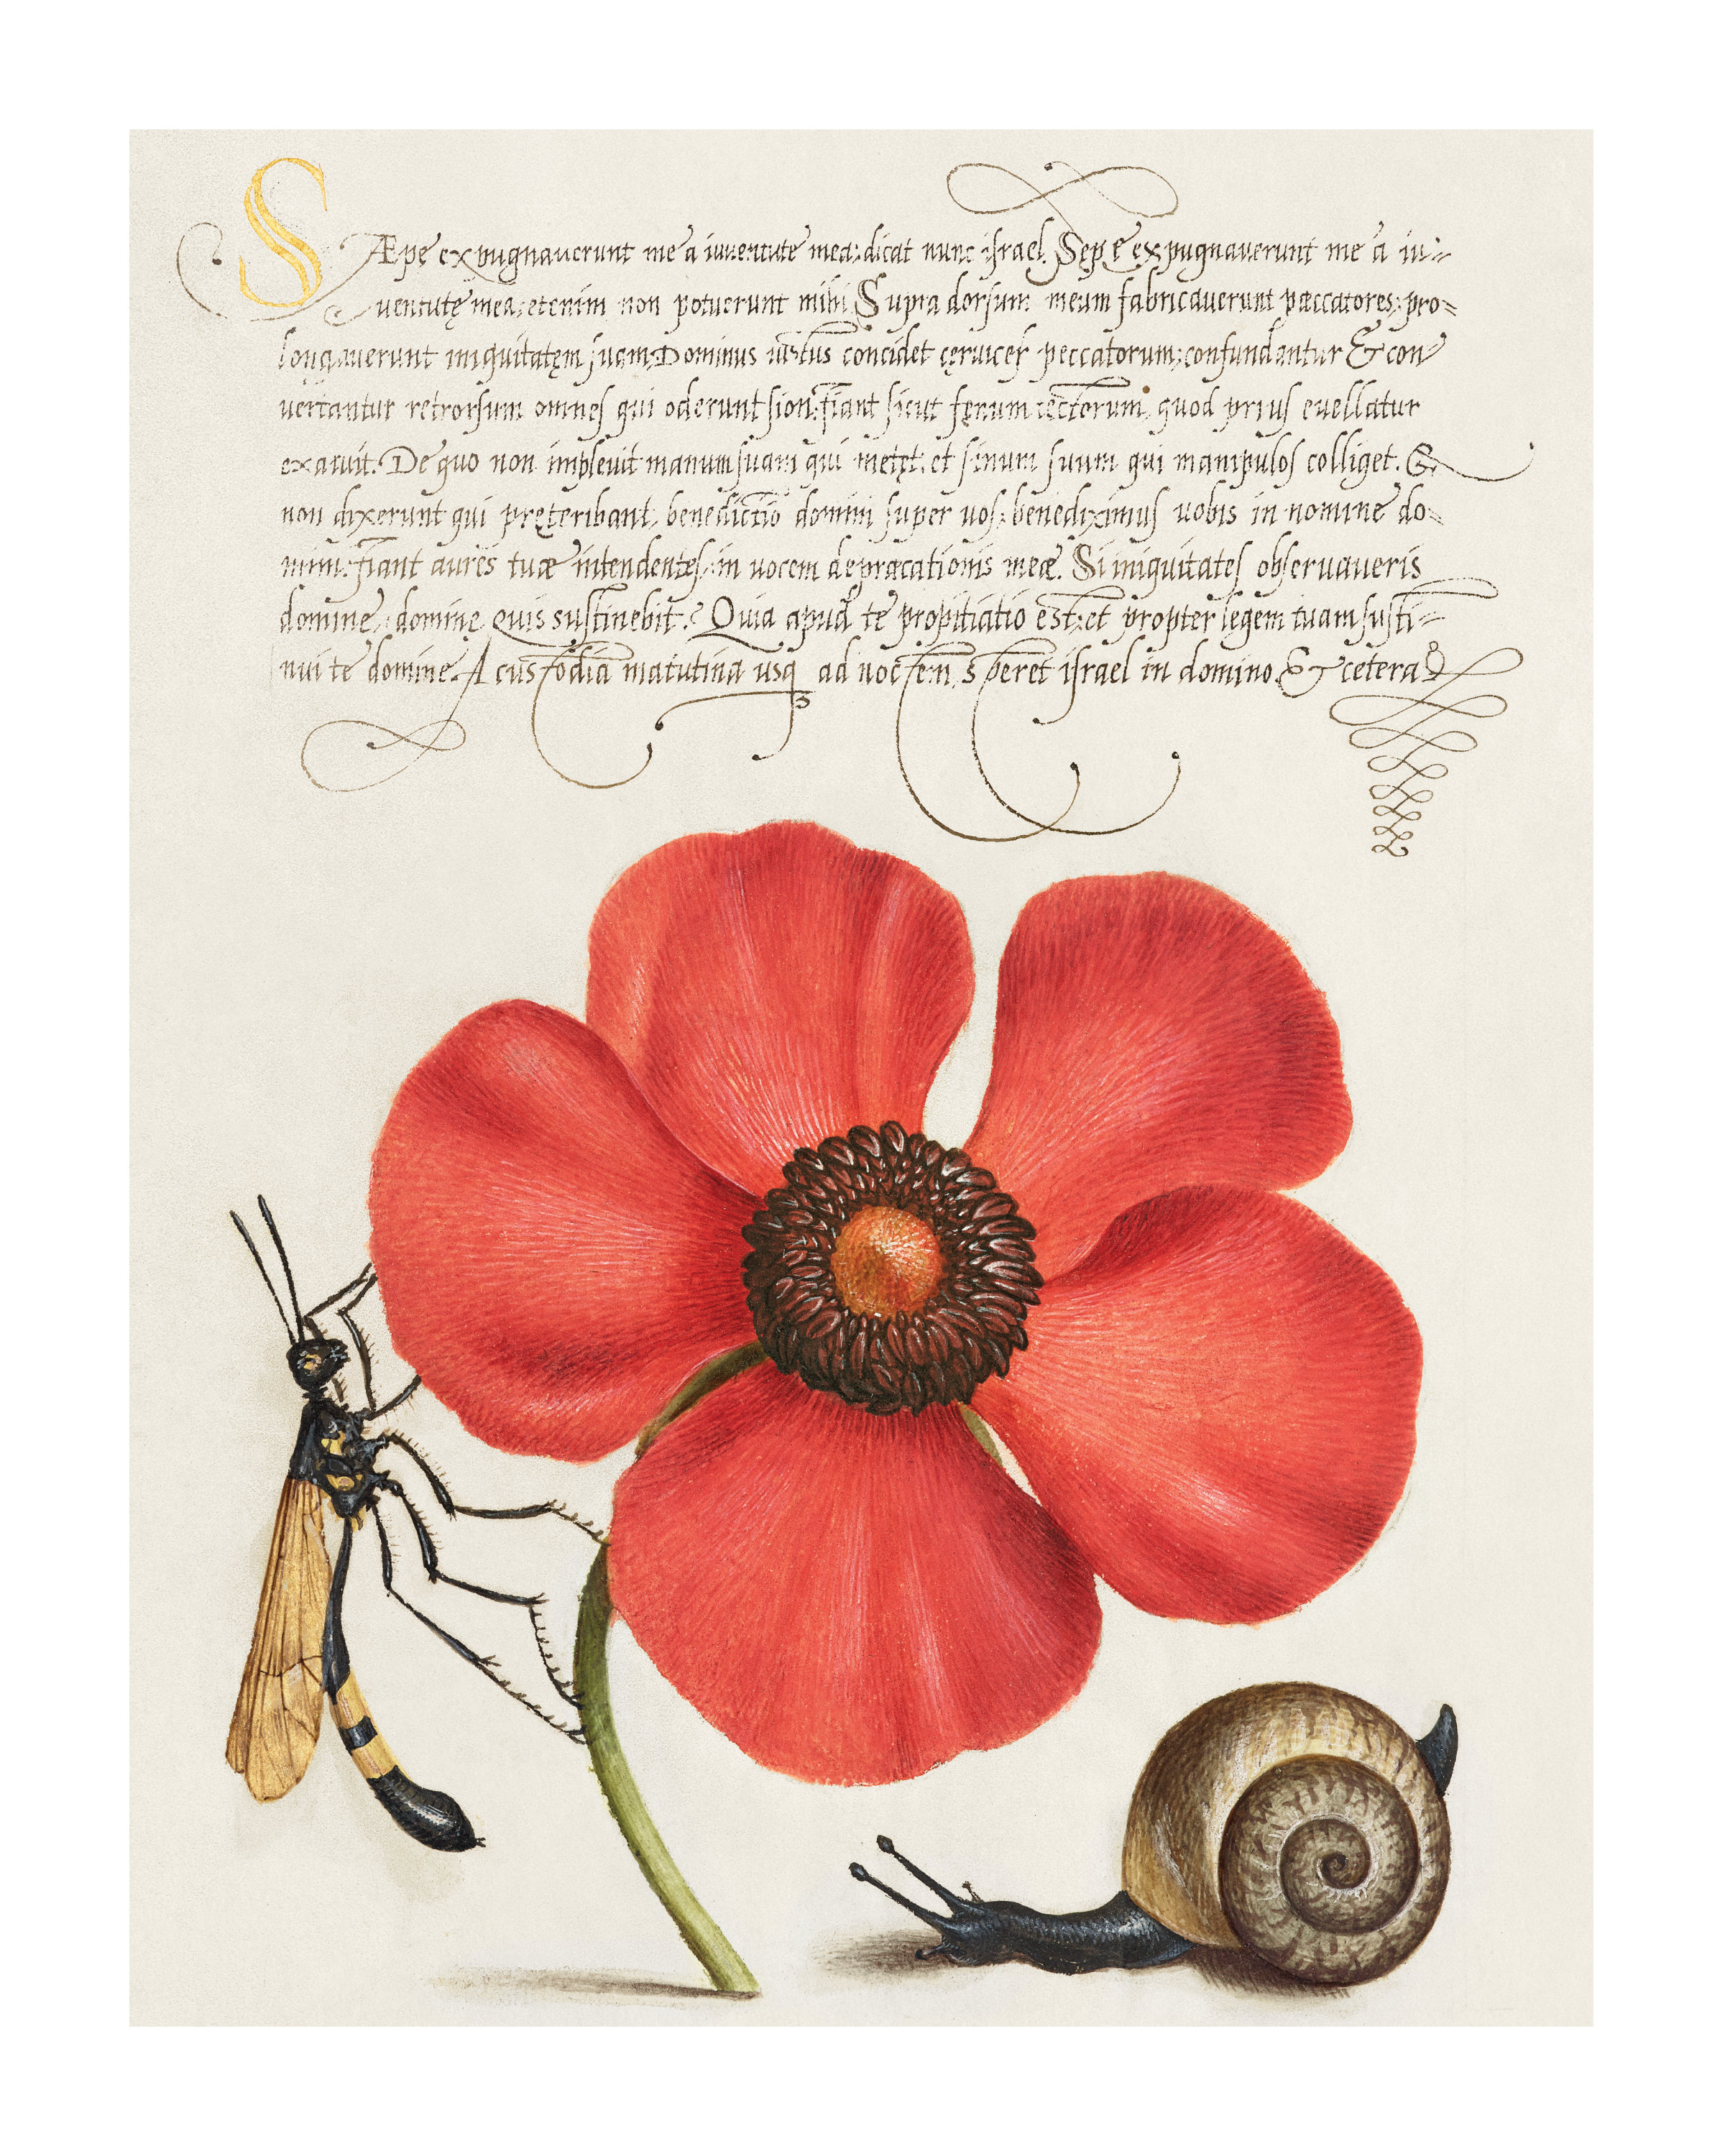 SÆpe expugnauerunt me a iuuentute mea: dicat nunc israel. Sepe expugnauerunt me a iu=
uentute mea: etenim non potuerunt mihi Supra dorsum meum fabricauerunt pæccatores: pro=
longauerunt iniquitatem suam. Dominus iustus concidet ceruices peccatorum: confundantur & con
uertantur retrorsum omnes qui oderunt sion: fiant sicut fęnum tectorum, quod prius euellatur
exaruit. De quo non impleuit manum suam qui metet: et sinum suum qui manipulos colliget. &
non dixerunt qui pręteribant, benedictio domini super uos: benediximus uobis in nomine do=
mini: fiant aures tuæ intendentes: in uocem depræcationis meæ. Si iniquitates obseruaueris
domine, domine quis sustinebit? Quia apud te propitiatio est: et propter legem tuam susti=
nui te domine. A custodia matutina usq ad noctem, speret israel in domino. & cetera